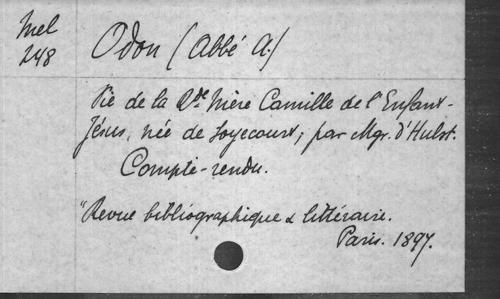 Mel
248
Odon (Abbé A.)
Vie de la Vde Mère Camille de l'Enfant-
Jésus, née de Soyecourt; par Mgr. d'Hulst.
Compte-rendu.
"Revue bibliographique & littéraire.
Paris. 1897.